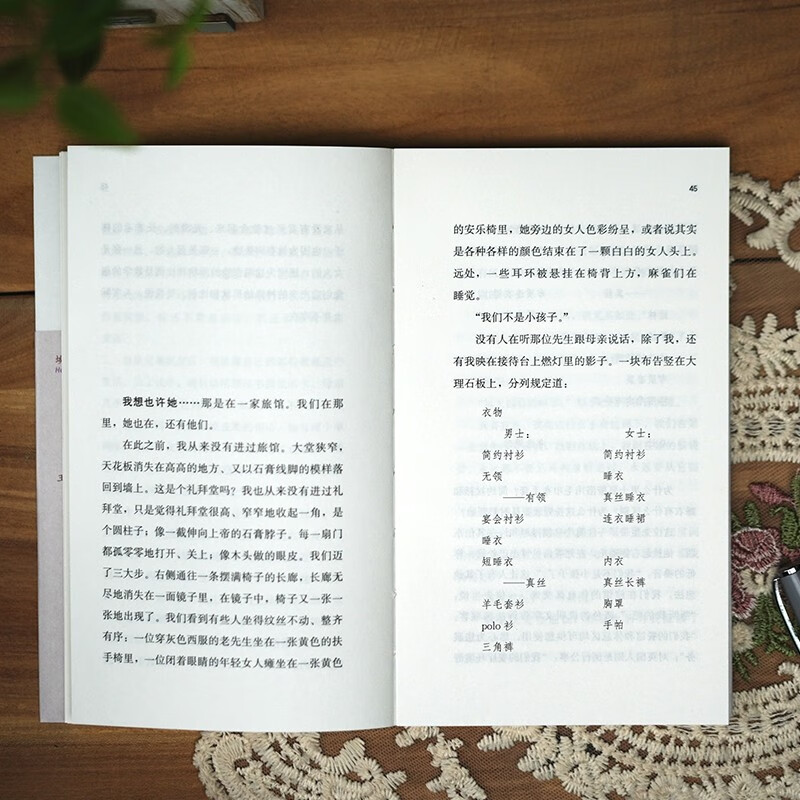 我想也许她……那是在一家旅馆。我们在那
里，她也在，还有他们。
在此之前，我从来没有进过旅馆。大堂狭窄，
天花板消失在高高的地方、又以石膏线脚的模样落
回到墙上。这是个礼拜堂吗？我也从来没有进过礼
拜堂，只是觉得礼拜堂很高、窄窄地收起一角，是
个圆柱子；像一截伸向上帝的石膏脖子。每一扇门
都孤零零地打开、关上；像木头做的眼皮。我们迈
了三大步。右侧通往一条摆满椅子的长廊，长廊无
尽地消失在一面镜子里，在镜子中，椅子又一张一
张地出现了。我们看到有些人坐得纹丝不动、整齐
有序；一位穿灰色西服的老先生坐在一张黄色的扶
手椅里，一位闭着眼睛的年轻女人瘫坐在一张黄色
45
的安乐椅里，她旁边的女人色彩纷呈，或者说其实
是各种各样的颜色结束在了一颗白白的女人头上。
远处，一些耳环被悬挂在椅背上方，麻雀们在
睡觉。
“我们不是小孩子。”
没有人在听那位先生跟母亲说话，除了我，还
有我映在接待台上燃灯里的影子。一块布告竖在大
理石板上，分列规定道：
衣物
男士： 女士：
简约衬衫 简约衬衫
无领 睡衣
——有领 真丝睡衣
宴会衬衫 连衣睡裙
睡衣
短睡衣 内衣
——真丝 真丝长裤
羊毛套衫 胸罩
polo 衫 手帕
三角裤